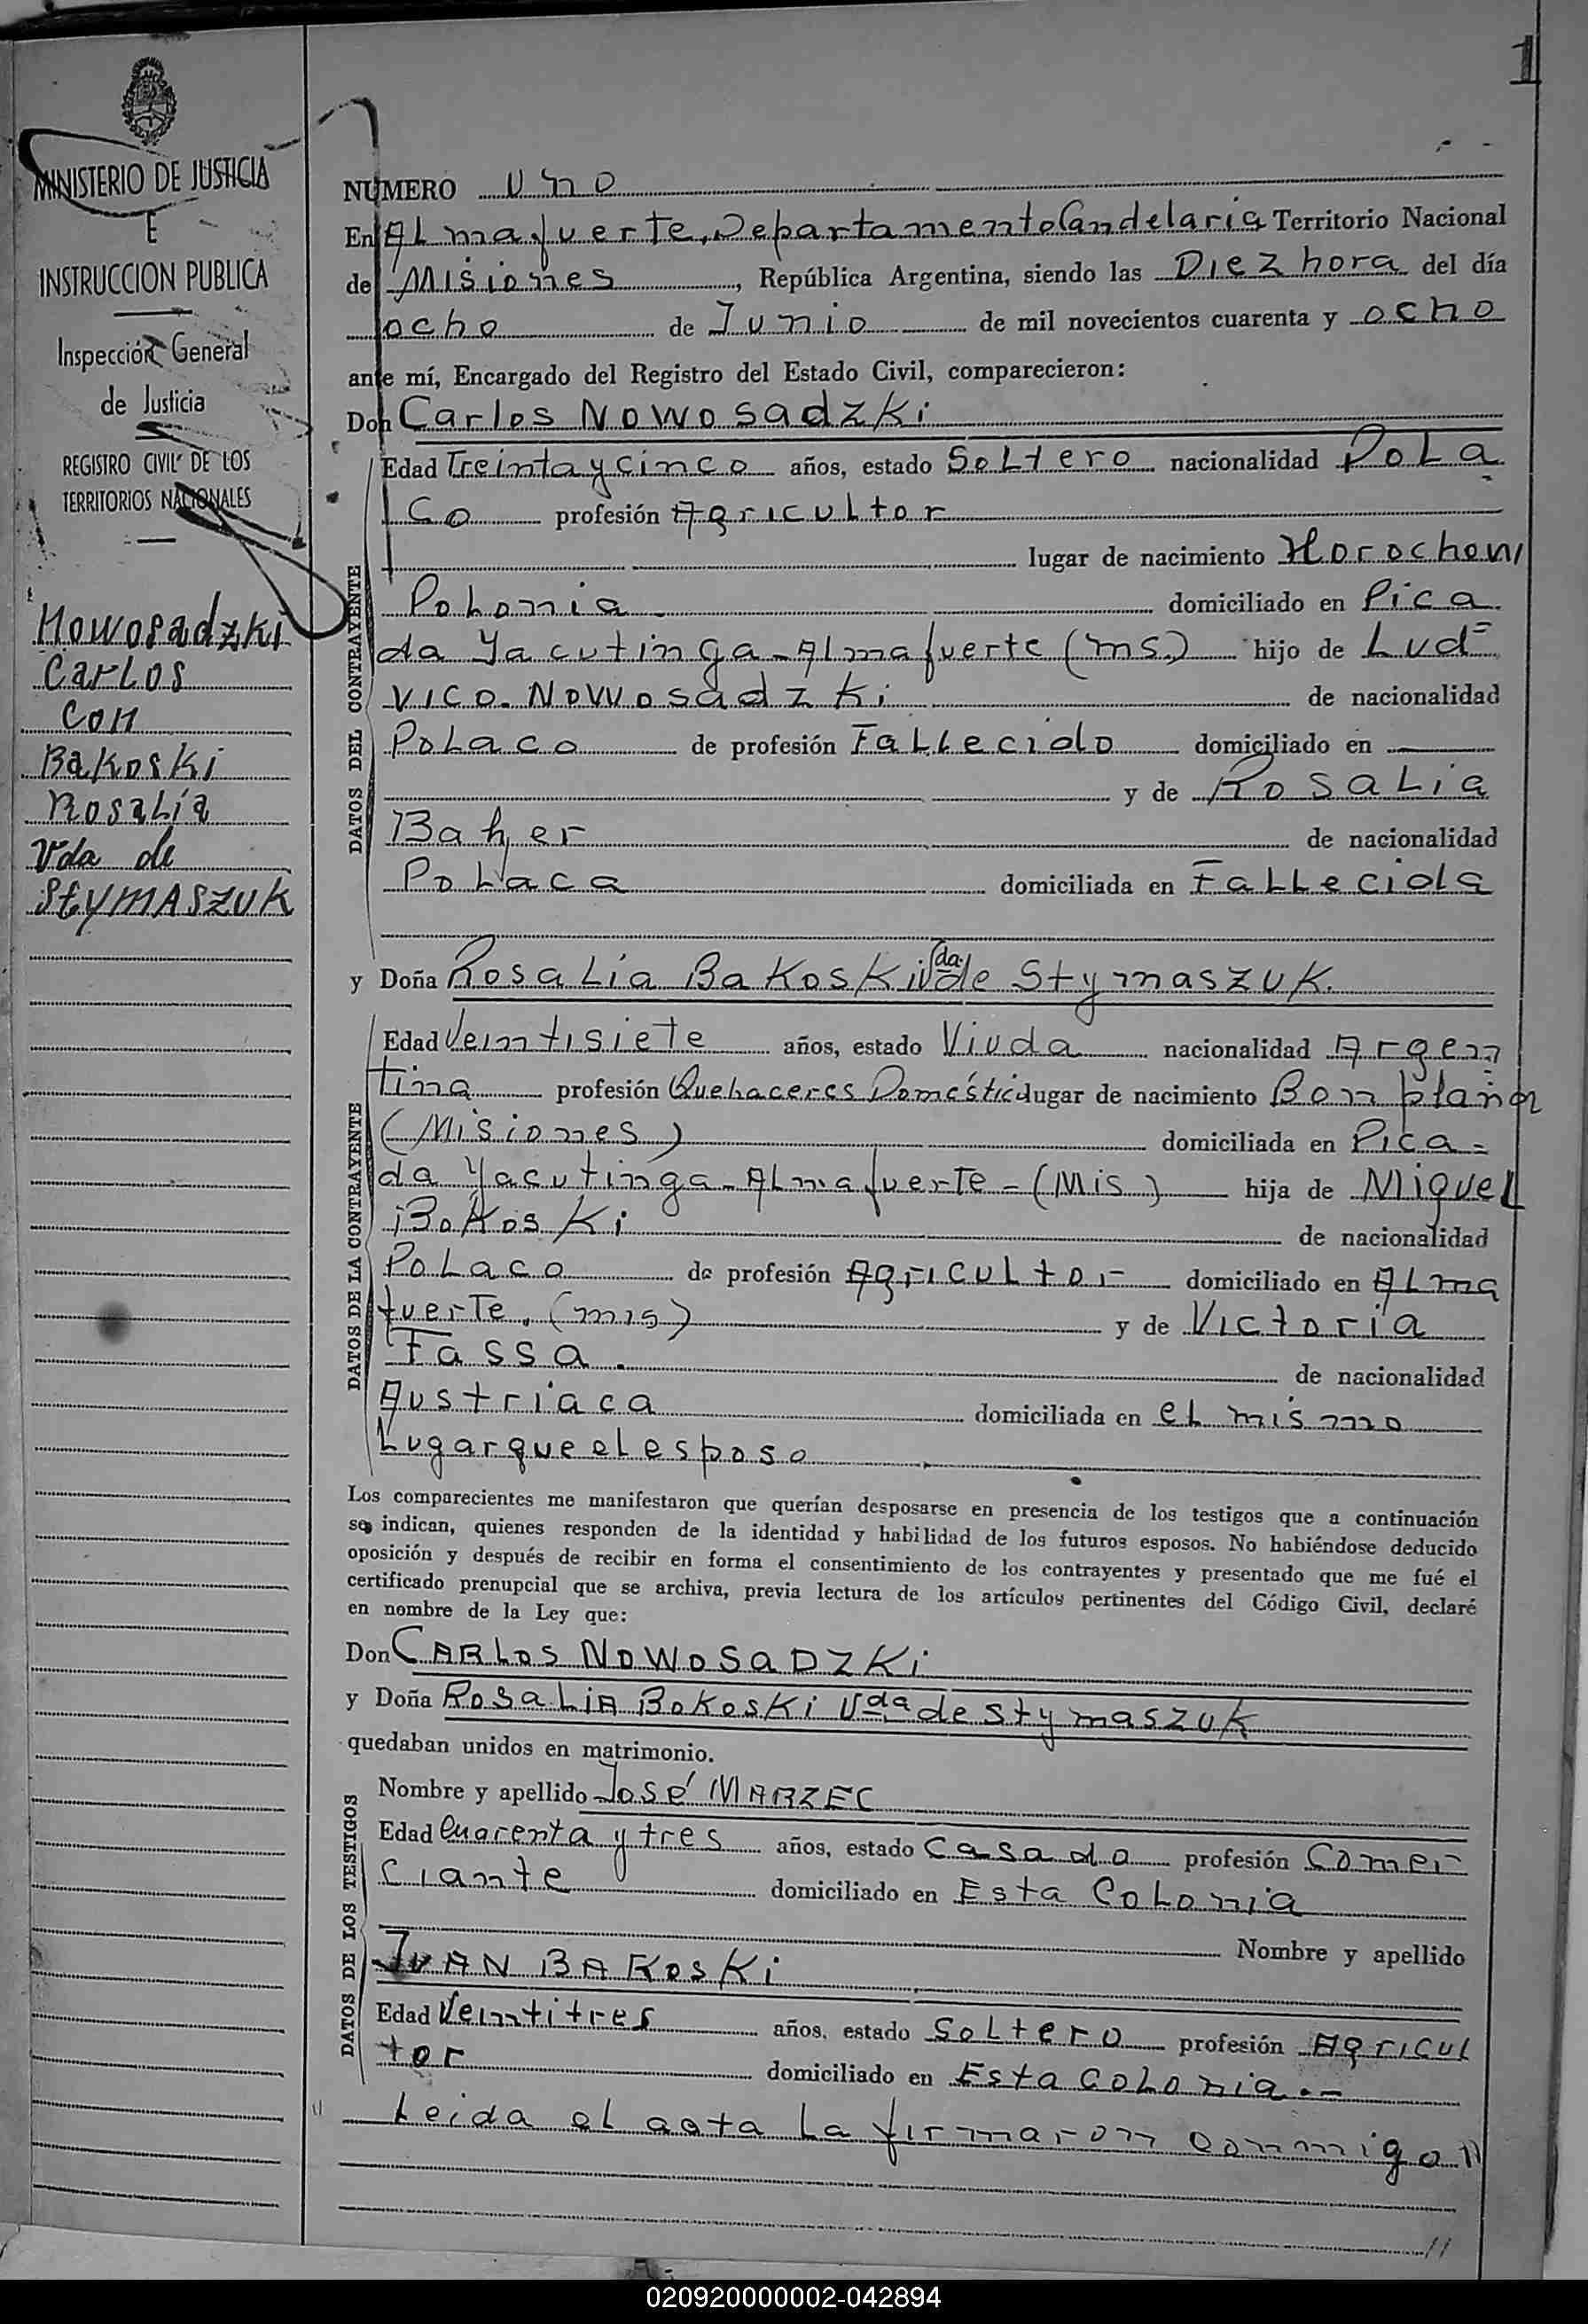 1
MINISTERIO DE JUSTICIA
E
INSTRUCCION PUBLICA
Inspección General
de Justicia
REGISTRO CIVIL DE LOS
TERRITORIOS NACIONALES
Nowosadzki
Carlos
con
Bakoski
Rosalía
Vda de
StYMASZUK
NUMERO uno
En Almafuerte, Departamento Candelaria Territorio Nacional
de Misiones, República Argentina, siendo las Diez hora del día
ocho de Junio de mil novecientos cuarenta y ocho
ante mí, Encargado del Registro del Estado Civil, comparecieron:
Don Carlos Nowosadzki
DATOS DEL CONTRAYENTE
Edad Treinta y cinco años, estado Soltero nacionalidad Pola
co profesión Agricultor
lugar de nacimiento Horochow
Polonia domiciliado en Pica
da Yacutinga - Almafuerte (ms.) hijo de Lud=
vico. Nowosadzki de nacionalidad
Polaco de profesión Fallecido domiciliado en
y de Rosalia
Baher de nacionalidad
Polaca domiciliada en Fallecida
y Doña Rosalia Bakoski Vda. de Stymaszuk.
DATOS DE LA CONTRAYENTE
Edad Veintisiete años, estado Viuda nacionalidad Argen
tina profesión Quehaceres Domésticlugar de nacimiento Bonpland
(Misiones) domiciliada en Pica=
da Yacutinga - Almafuerte - (Mis) hija de Miguel
Bokoski de nacionalidad
Polaco de profesión Agricultor domiciliado en Alma
fuerte. (mis) y de Victoria
Tassa. de nacionalidad
Austriaca domiciliada en el mismo
Lugar que el esposo
Los comparecientes me manifestaron que querían desposarse en presencia de los testigos que a continuación
se indican, quienes responden de la identidad y habilidad de los futuros esposos. No habiéndose deducido
oposición y después de recibir en forma el consentimiento de los contrayentes y presentado que me fué el
certificado prenupcial que se archiva, previa lectura de los artículos pertinentes del Código Civil, declaré
en nombre de la Ley que:
Don CARLOS NOWOSADZKi
y Doña RosaLiA Bokoski Vda de Stymaszuk
quedaban unidos en matrimonio.
DATOS DE LOS TESTIGOS
Nombre y apellido José MARZEC
Edad Cuarenta y tres años, estado Casado profesión Comer
ciante domiciliado en Esta Colonia
Nombre y apellido
JUAN BAKOSKi
Edad Veintitres años, estado Soltero profesión Agricul
tor domiciliado en Esta Colonia.-
Leida el acta la firmaron conmigo //
//
020920000002-042894